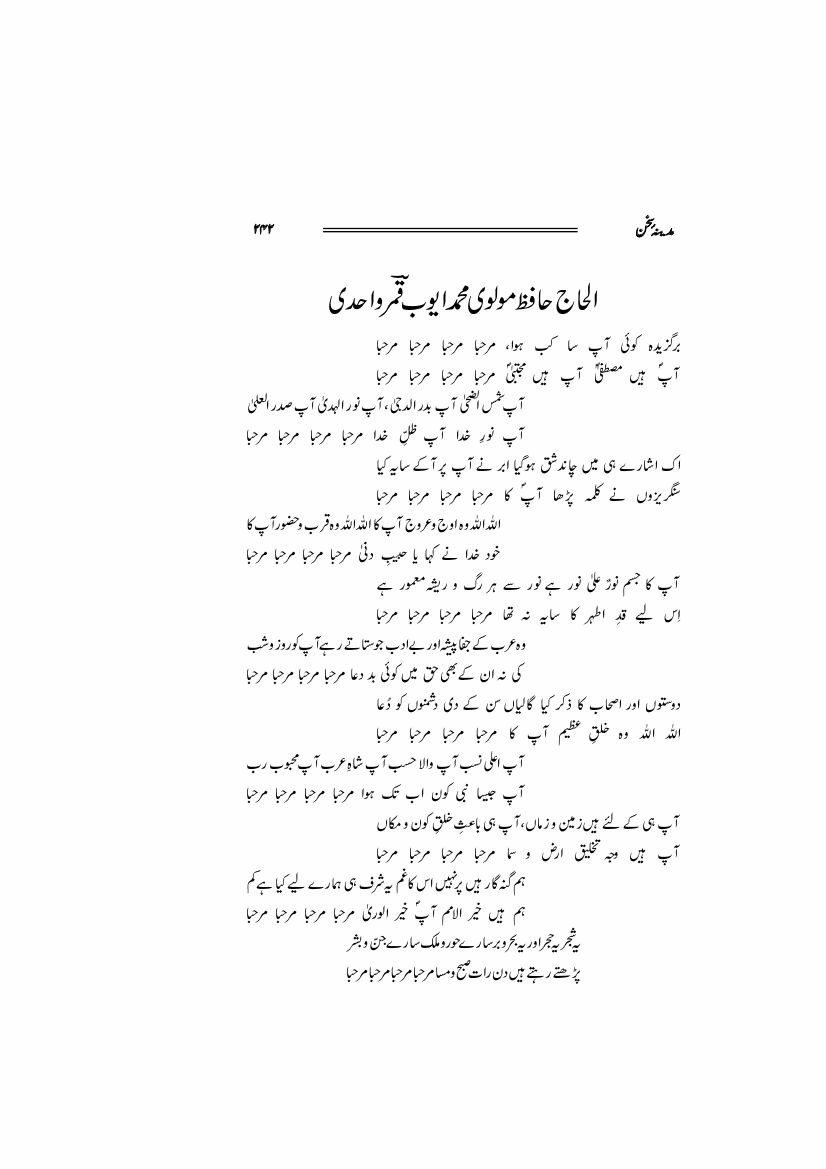 مدینۂ سخن ۲۴۲
الحاج حافظ مولوی محمد ایوب قمرؔ واحدی
برگزیدہ کوئی آپ سا کب ہوا، مرحبا مرحبا مرحبا مرحبا
آپؐ ہیں مصطفیٰؐ آپ ہیں مجتبیٰؐ مرحبا مرحبا مرحبا مرحبا
آپ شمس الضحیٰ آپ بدر الدجیٰ، آپ نور الہدیٰ آپ صدر العلیٰ
آپ نورِ خدا آپ ظلِّ خدا مرحبا مرحبا مرحبا مرحبا
اک اشارے ہی میں چاند شق ہوگیا ابر نے آپ پر آکے سایہ کیا
سنگریزوں نے کلمہ پڑھا آپؐ کا مرحبا مرحبا مرحبا مرحبا
اللہ اللہ وہ اوج و عروج آپ کا اللہ اللہ وہ قرب و حضور آپ کا
خود خدا نے کہا یا حبیبِ دنیٰ مرحبا مرحبا مرحبا مرحبا
آپ کا جسم نورٌ علیٰ نور ہے نور سے ہر رگ و ریشہ معمور ہے
اِس لیے قدِ اطہر کا سایہ نہ تھا مرحبا مرحبا مرحبا مرحبا
وہ عرب کے جفا پیشہ اور بے ادب جو ستاتے رہے آپ کو روز و شب
کی نہ ان کے بھی حق میں کوئی بد دعا مرحبا مرحبا مرحبا مرحبا
دوستوں اور اصحاب کا ذکر کیا گالیاں سن کے دی دشمنوں کو دُعا
اللہ اللہ وہ خلقِ عظیم آپ کا مرحبا مرحبا مرحبا مرحبا
آپ اعلی نسب آپ والا حسب آپ شاہِ عرب آپ محبوب رب
آپ جیسا نبی کون اب تک ہوا مرحبا مرحبا مرحبا مرحبا
آپ ہی کے لئے ہیں زمین و زماں، آپ ہی باعثِ خلقِ کون و مکاں
آپ ہیں وجہ تخلیق ارض و سما مرحبا مرحبا مرحبا مرحبا
ہم گنہ گار ہیں پر نہیں اس کا غم یہ شرف ہی ہمارے لیے کیا ہے کم
ہم ہیں خیر الامم آپؐ خیر الوریٰ مرحبا مرحبا مرحبا مرحبا
یہ شجر یہ حجر اور یہ بحر و بر سارے حور و ملک سارے جنّ و بشر
پڑھتے رہتے ہیں دن رات صبح و مسا مرحبا مرحبا مرحبا مرحبا